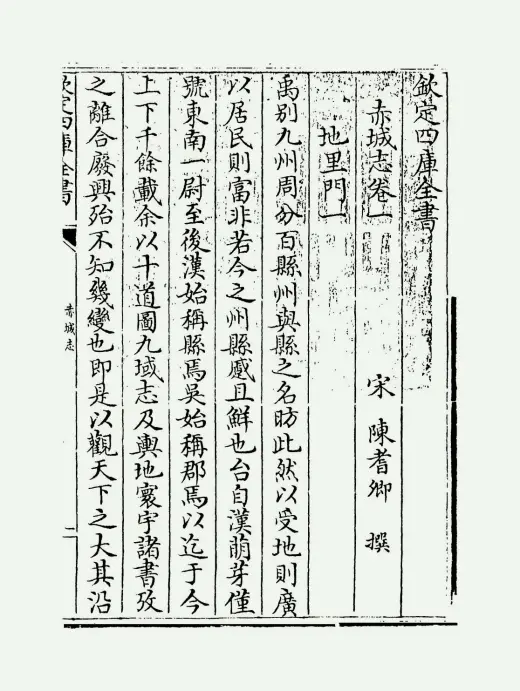 欽定四庫全書
赤城志卷一
宋 陳耆卿 撰
地里門一
禹別九州周分百縣州與縣之名昉此然以受地則廣
以居民則富非若今之州縣慼且鮮也台自漢萌芽僅
號東南一尉至後漢始稱縣焉吳始稱郡焉以迄于今
上下千餘載余以十道圖九域志及輿地寰宇諸書攷
之離合廢興殆不知幾變也即是以觀天下之大其沿
欽定四庫全書
赤城志